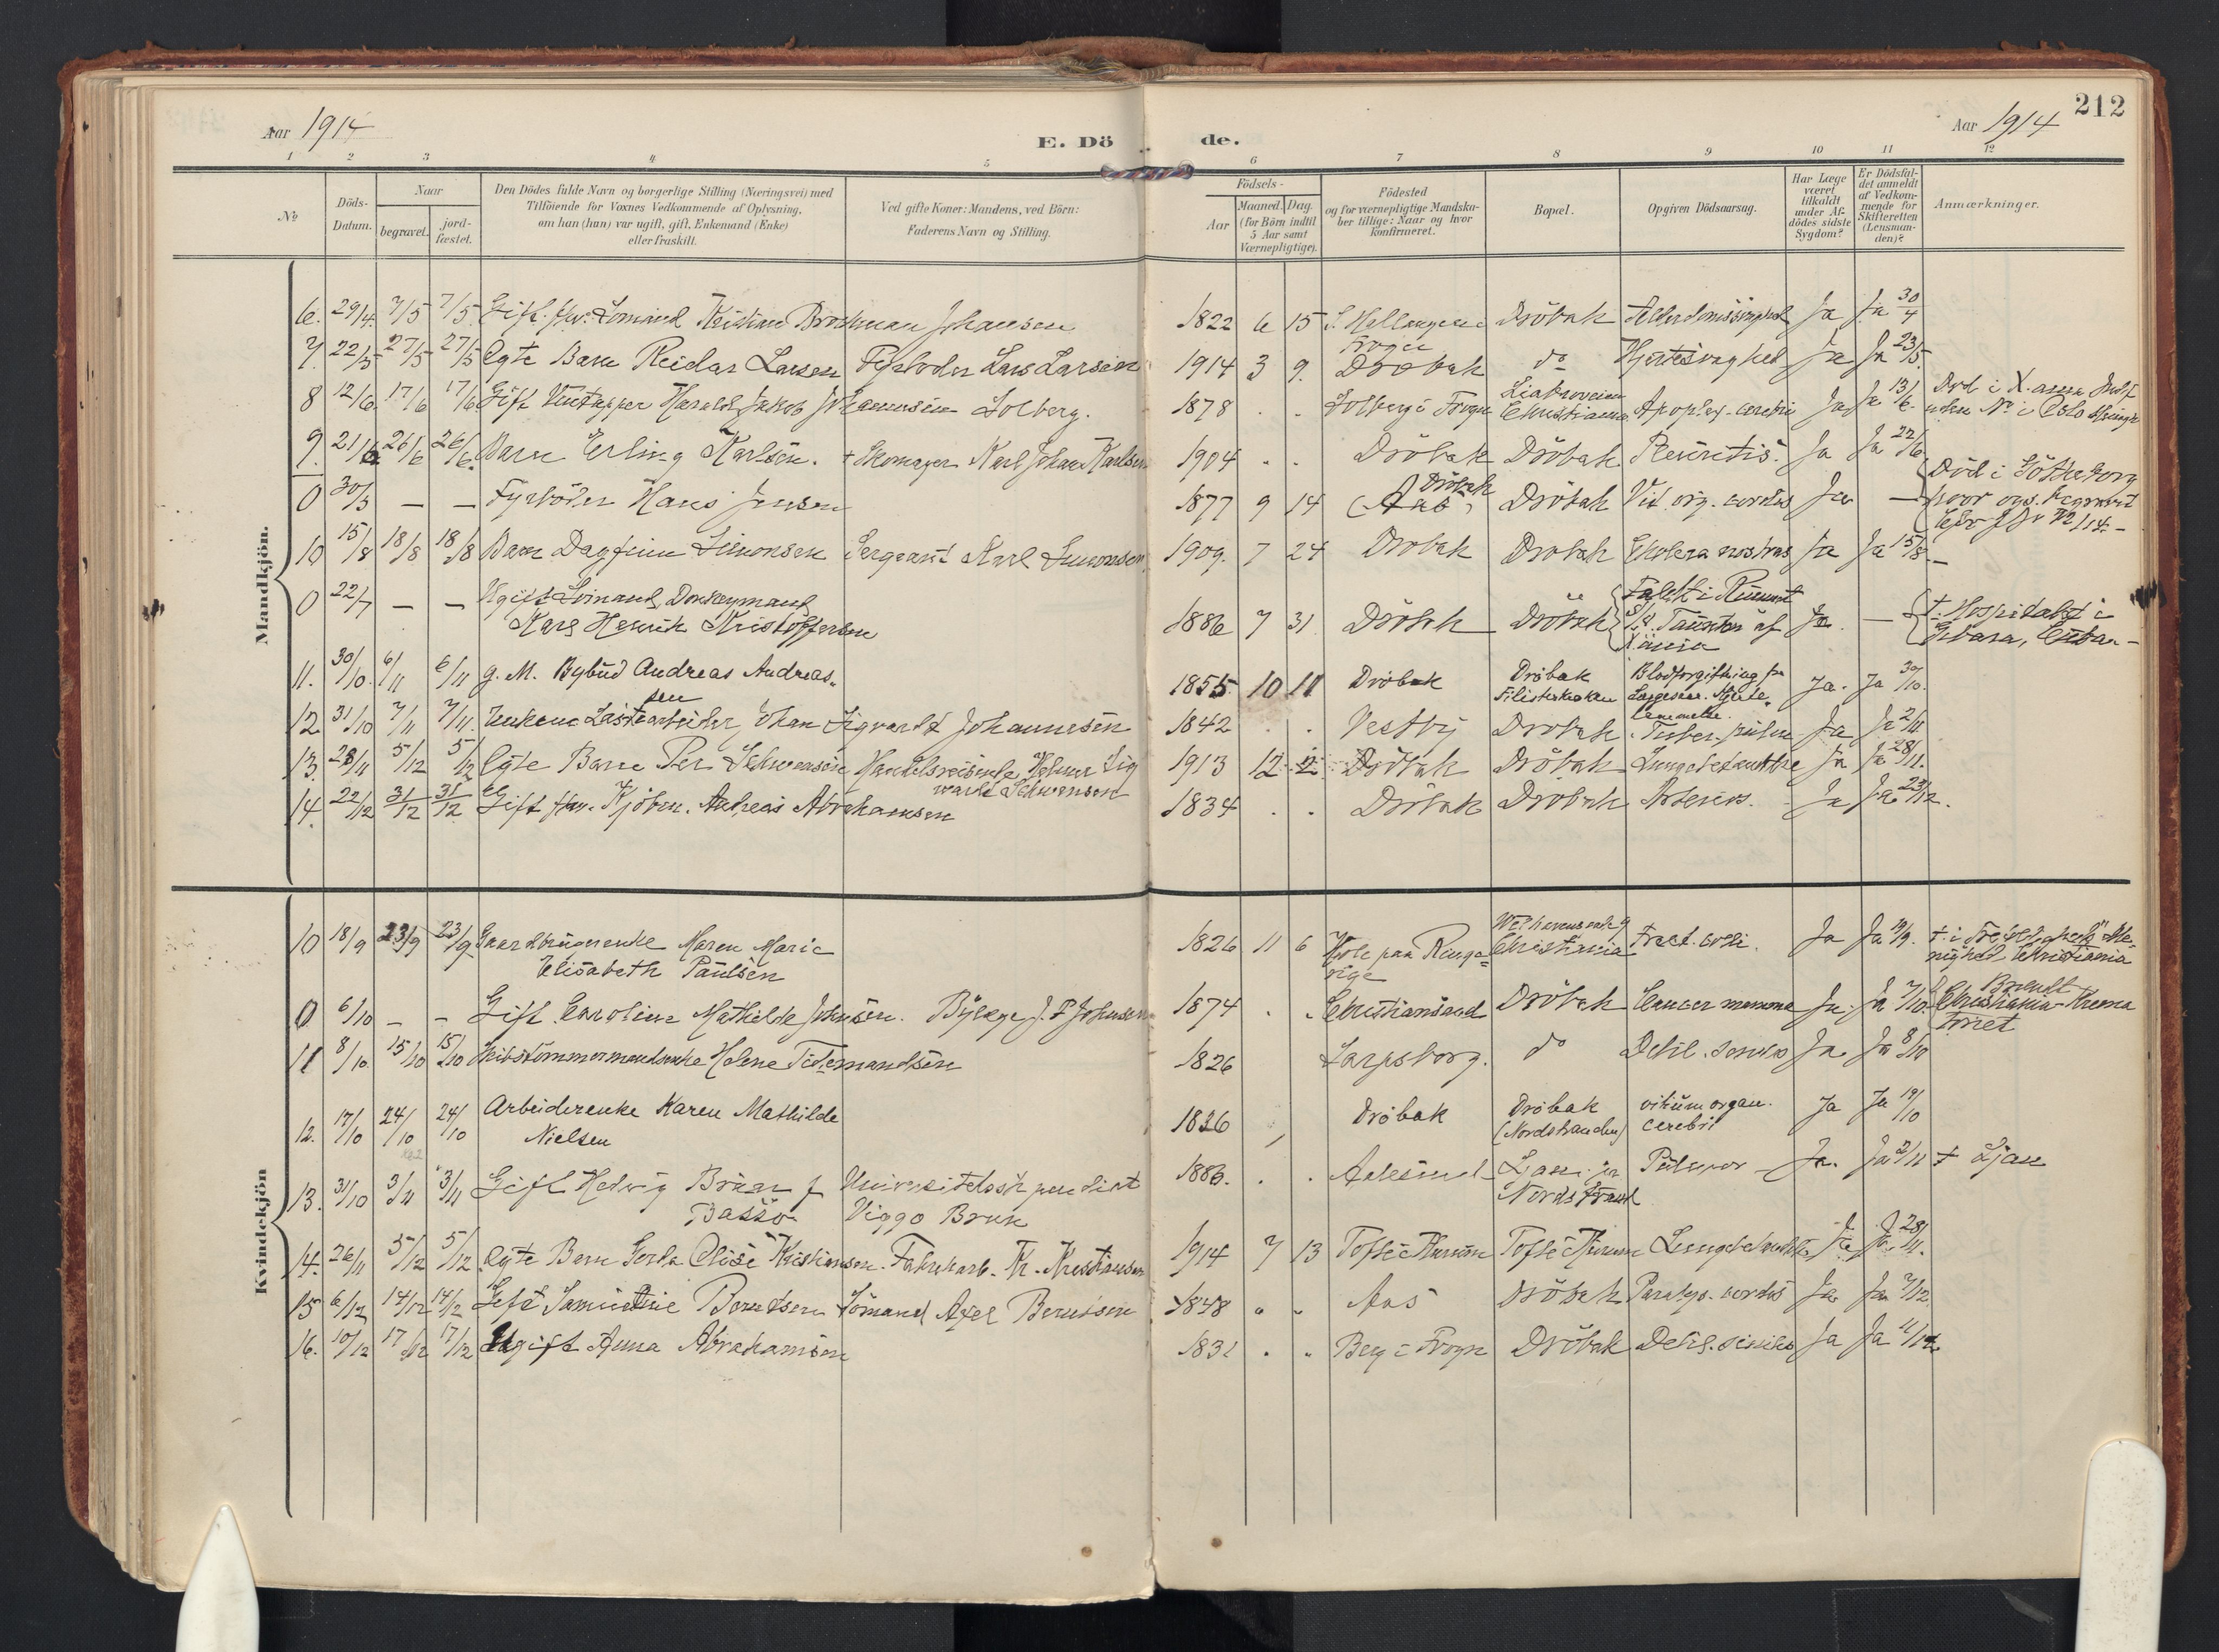 212
Aar 1914
E. Dö de.
Aar 1914
1 2 3 4 5 6 7 8 9 10 11 12
No
Döds-Datum.
Naar
begravet.
jord-fæstet.
Den Dödes fulde Navn og borgerlige Stilling (Næringsvei) med
Tilföiende for Voxnes Vedkommende af Oplysning,
om han (hun) var ugift, gift, Enkemand (Enke)
eller fraskilt.
Ved gifte Koner: Mandens, ved Börn:
Faderens Navn og Stilling.
Födsels-
Aar
Maaned. Dag.
(for Börn indtil
5 Aar samt
Værnepligtige).
Födested
og for værnepligtige Mandska-
ber tillige: Naar og hvor
konfirmeret.
Bopæl.
Opgiven Dödsaarsag.
Har Læge
været
tilkaldt
under Af-
dödes sidste
Sygdom?
Er Dödsfal-
det anmeldt
af Vedkom-
mende for
Skifteretten
(Lensman-
den)?
Anmærkninger.
Mandkjön.
6. 29/4. 7/5 7/5 Gift. fhv. Sömand Kristian Brockman Johansen 1822 6 15 Dröbak Ja Ja 30/4
Frogn
7. 22/5 27/5 27/5 Ægte Barn Reidar Larsen Fyrböder Lars Larsen 1914 3 9. Dröbak do Hjertesvaghed Ja Ja 23/5.
8 12/6. 17/6 17/6 Gift Vintapper Harald Jakob Johannesen Solberg. 1878 . . Solberg i Frogn Christiania Apoplex. cerebri Ja Ja 13/6.
9. 21/6 26/6 26/6. Barn Erling Karlsen. + Skomager Karl Johan Karlsen 1904 . . Dröbak Dröbak. Ja Ja 22/6
0 30/3 — — Fyrböder Hans Jensen 1877 9 14 (Aas) Dröbak Dröbak Vit. org. cordis Ja — Död i Göteborg
10 15/8 18/8 18/8 Barn Dagfinn Simonsen Sergeant Karl Simonsen 1909. 7 24 Dröbak Dröbak Cholera nostras Ja Ja 15/8 —
0 22/7 — — Ugift Sömand, Donkeymand
Karl Henrik Kristoffersen 1886 7 31 Dröbak Dröbak Ja. — + Hospitalet i
Gibara, Cuba —
11. 30/10. 6/11 6/11 g. M. Bybud Andreas Andreas-
sen 1855 10 11 Dröbak Dröbak Blodforgiftning Ja. Ja 30/10.
12 31/10 7/11 7/11. Enkem. Lastearbeider Johan Sigvardt Johannesen 1842 . . Vestby Dröbak Tuber. pulm. Ja Ja 2/11
13. 28/11 5/12 5/12 Ægte Barn Per Schwensen Handelsreisende Helmer Sig
ward Schwensen 1913 12 2 Dröbak Dröbak Lungebetændelse Ja Ja 28/11.
14. 22/12 31/12 31/12 Gift fhv. Kjöbm. Andreas Abrahamsen 1834 . . Dröbak Dröbak Ja Ja 23/12.
Kvindekjön
10 18/9 23/9 23/9 Gaardbrugerenke Maren Marie
Elisabeth Paulsen 1826 11 6 Hole paa Ringe-
rige Christiania Fract. colli. Ja Ja 19/9.
nighed Christiania
0 6/10 — — Gift Caroline Mathilde Johnsen. J. P. Johnsen 1874 . . Christiansand Dröbak Cancer mammæ Ja. Ja 7/10. Brændt
Christiania Krema
toriet
11 8/10 15/10 15/10 Skibstömmermandsenke Helene Tidemandsen 1826 Sarpsborg. do Debil. senilis Ja Ja 8/10
12. 17/10 24/10 24/10 Arbeiderenke Karen Mathilde
Nielsen 1836 Dröbak Dröbak
(Nordstranden) vitium organ.
cerebri Ja Ja 19/10
13. 31/10 3/11 3/11 Gift Hedvig Bruun f
Bassö Universitetsstipendiat
Viggo Bruun 1886. . . Aalesund Ljan
Nordstrand Ja. Ja 2/11 + Ljan
14. 26/11 5/12 5/12 Ægte Barn Gerda Elise Kristiansen. Fabrikarb. K. Kristiansen 1914 7 13 Tofte i Hurum Tofte i Hurum Lungebetændelse Ja Ja 28/11.
15 6/12 14/12 14/12 Gift Samueline Berntsen Sömand Axel Berntsen 1848 . . Aas Dröbak Paralys. cordis Ja Ja 7/12.
16. 10/12 17/12 17/12 Ugift Anna Abrahamsen 1831 . . Berg i Frogn Dröbak Debil. senilis Ja Ja 11/12